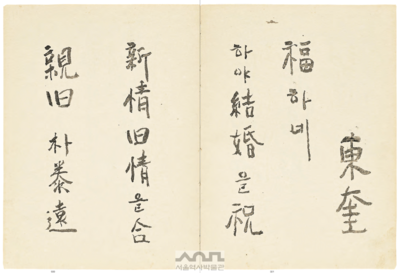 親旧 朴泰遠
新情旧情을合
하야結婚을祝
福하네
東奎
서울역사박물관